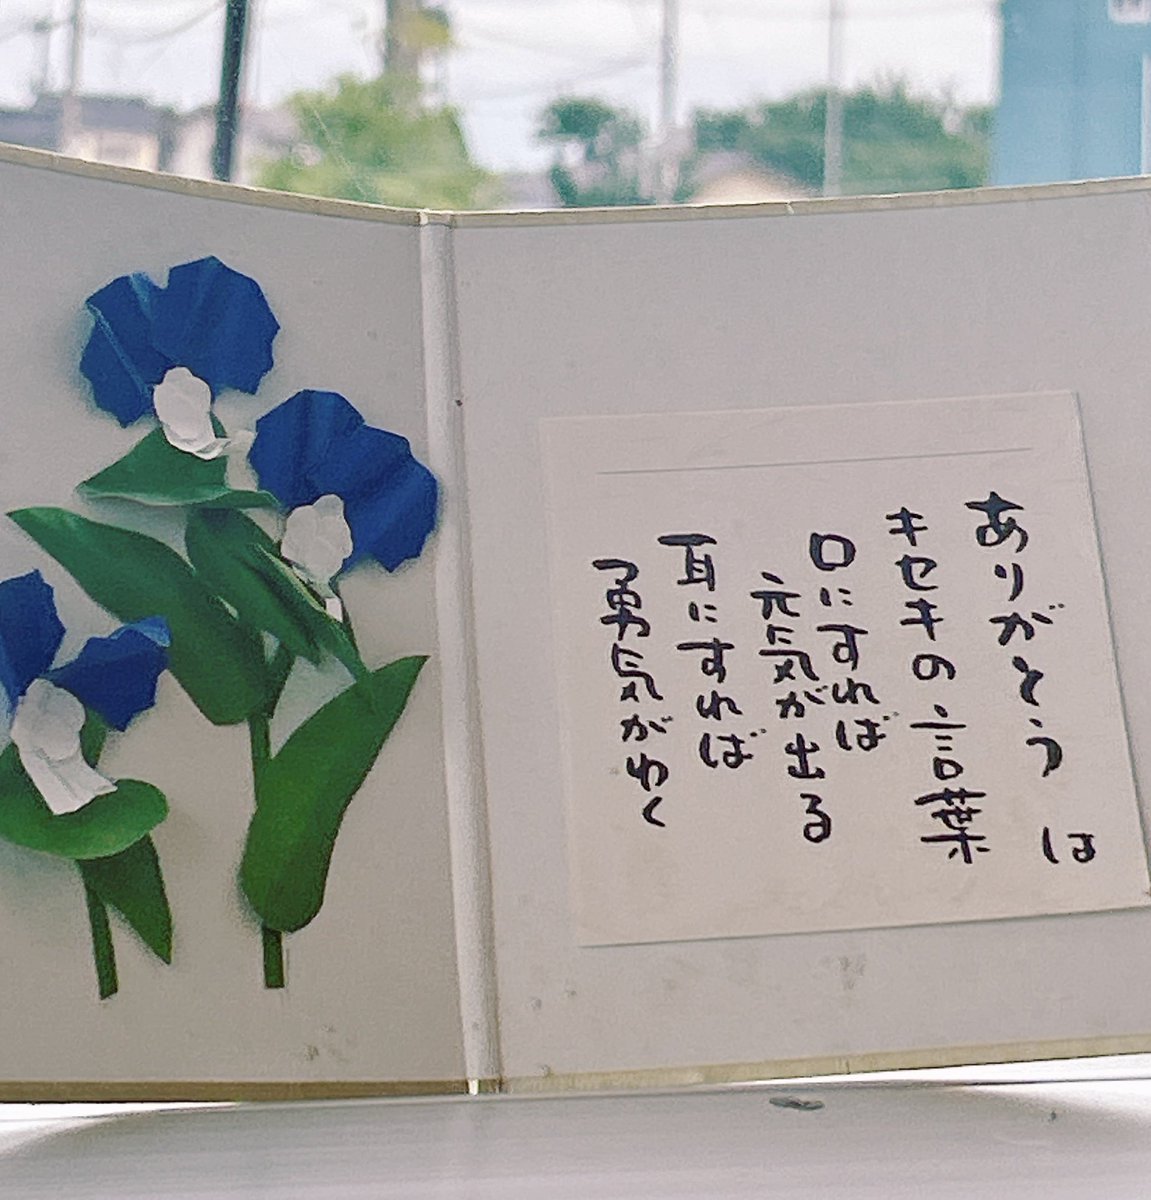 ありがとうは
キセキの言葉
口にすれば
元気が出る
耳にすれば
勇気がわく